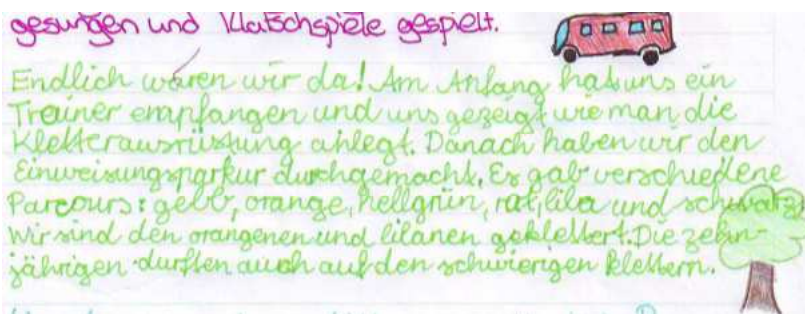 gesungen und Klatschspiele gespielt.
Endlich waren wir da! Am Anfang hat uns ein
Trainer empfangen und uns gezeigt wie man die
Kletterausrüstung anlegt. Danach haben wir den
Einweisungsparkur durchgemacht. Es gab verschiedene
Parcours: gelb, orange, hellgrün, rot, lila und schwarz.
Wir sind den orangenen und lilanen geklettert. Die zehn-
jährigen durften auch auf den schwierigen klettern.